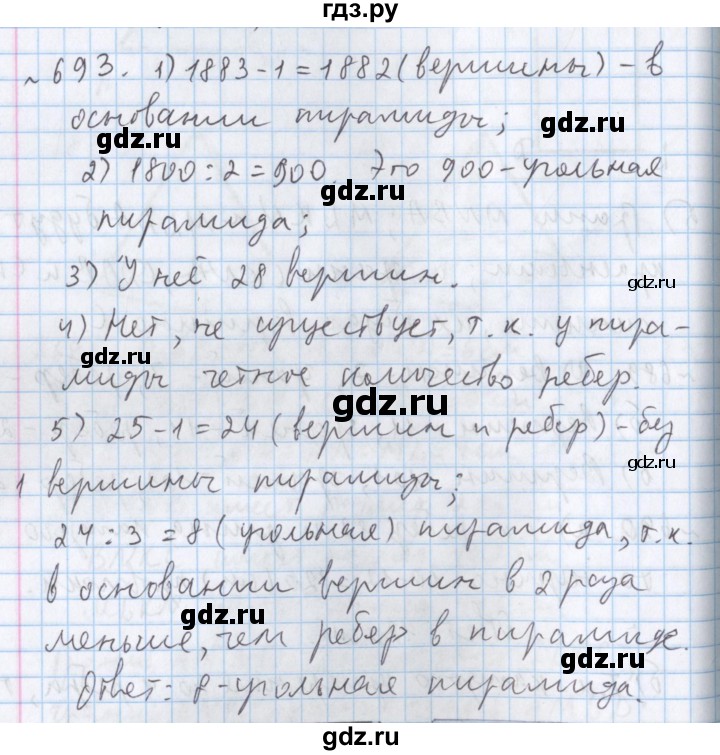 гдз.ру
№ 693. 1) 1883-1=1882 (вершины) - в
основании пирамиды;
gdz.ru
2) 1800:2=900. Это 900-угольная
gdz.ru
пирамида;
gdz.ru
3) У неё 28 вершин.
gdz.ru
4) Нет, не существует, т.к. у пира-
gdz.ru
миды четное количество ребер.
gdz.ru
5) 25-1=24 (вершин и ребер) - без
gdz.ru
1 вершины пирамиды;
gdz.ru
24:3=8 (угольная) пирамида, т.к.
gdz.ru
в основании вершин в 2 раза
gdz.ru
меньше, чем ребер в пирамиде.
gdz.ru
Ответ: 8-угольная пирамида.
gdz.ru